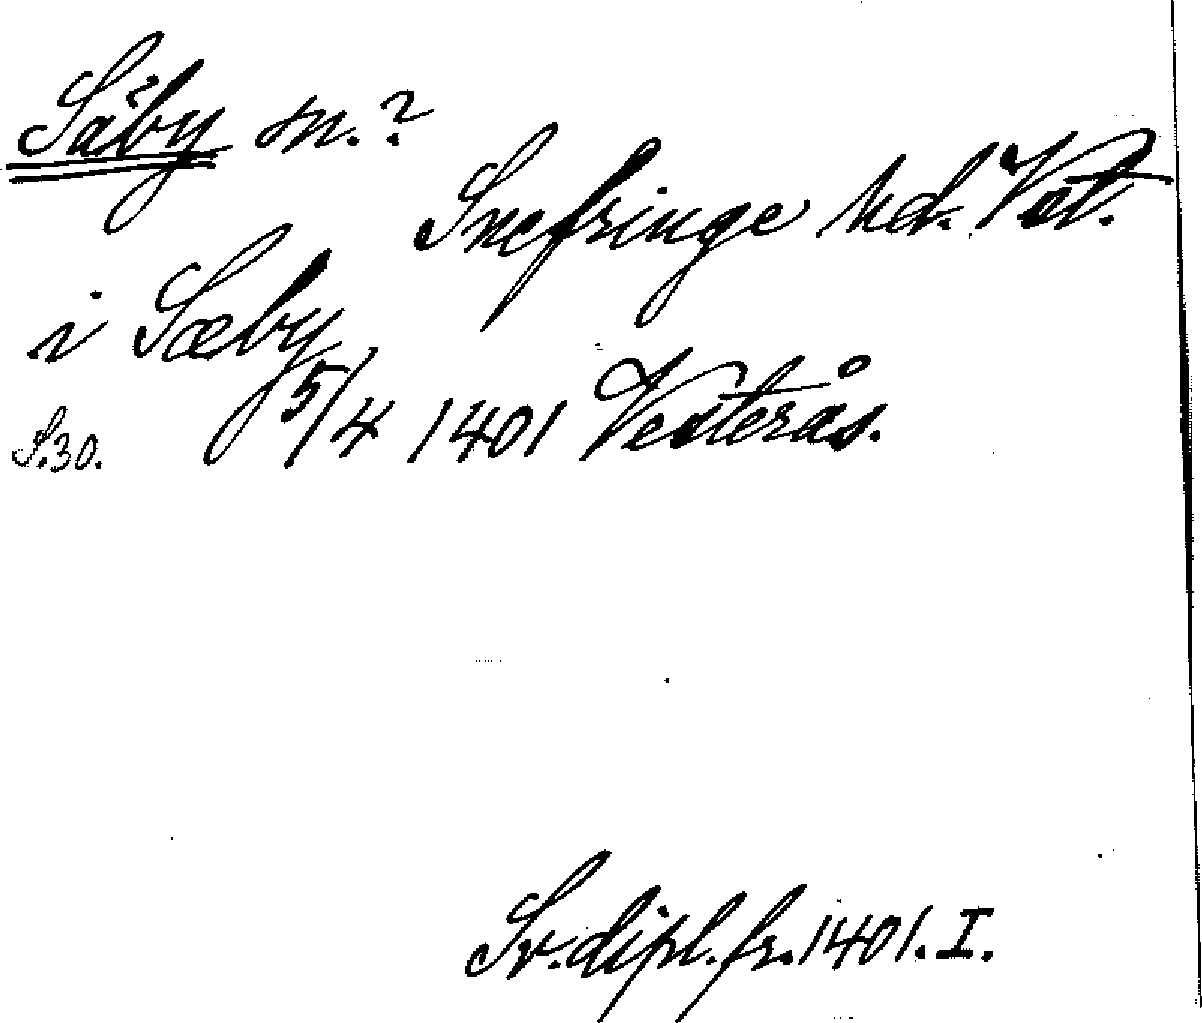 Säby sn.?
Snefringe hd. Vst.
i Sæby
5/4 1401 Vesterås.
S.30.
Sv.dipl.fr.1401.I.